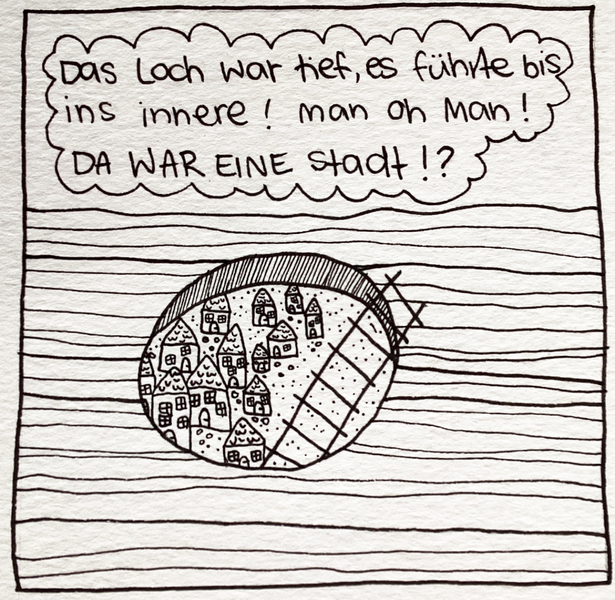 Das Loch war tief, es führte bis
ins innere! man oh Man!
DA WAR EINE Stadt!?